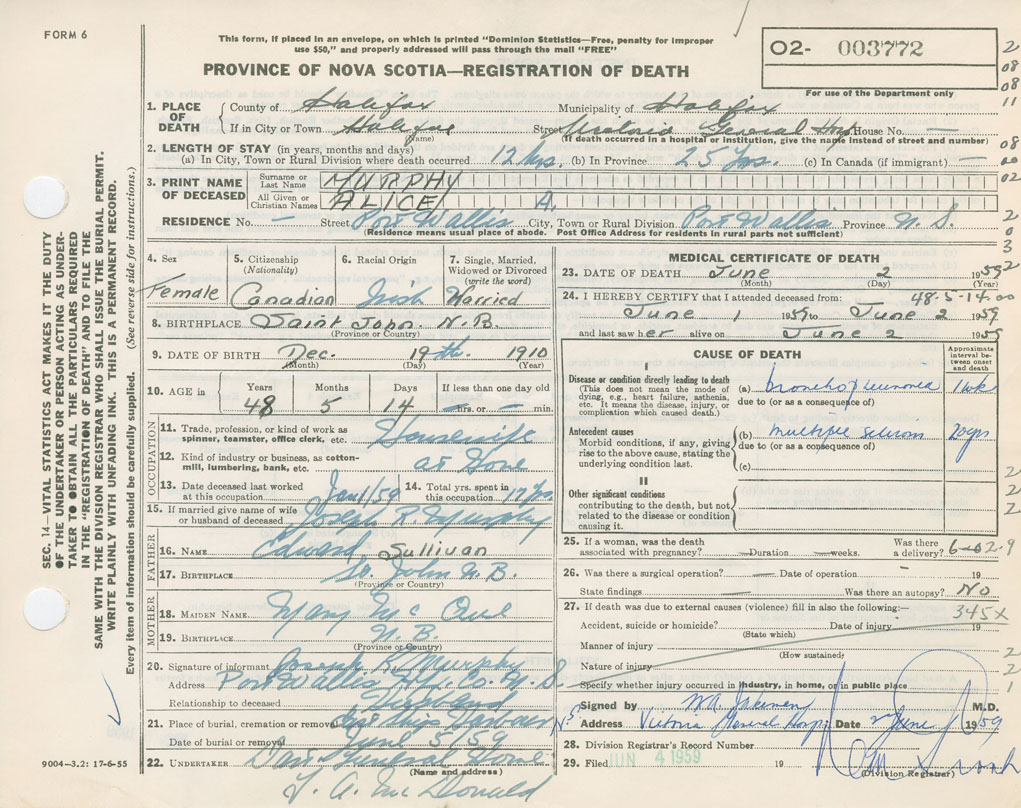 FORM 6
This form, if placed in an envelope, on which is printed "Dominion Statistics—Free, penalty for improper
use $50," and properly addressed will pass through the mail "FREE"
O2- 003772
PROVINCE OF NOVA SCOTIA—REGISTRATION OF DEATH
For use of the Department only
1. PLACE OF DEATH County of Halifax Municipality of Halifax
If in City or Town Halifax Street Victoria General Hosp. House No. —
(Name) (If death occurred in a hospital or institution, give the name instead of street and number)
2. LENGTH OF STAY (in years, months and days)
(a) In City, Town or Rural Division where death occurred 12 hrs. (b) In Province 25 yrs. (c) In Canada (if immigrant) —
3. PRINT NAME OF DECEASED Surname or Last Name MURPHY
All Given or Christian Names ALICE A.
RESIDENCE No. — Street Port Wallis City, Town or Rural Division Port Wallis Province N.S.
(Residence means usual place of abode. Post Office Address for residents in rural parts not sufficient)
4. Sex Female
5. Citizenship (Nationality) Canadian
6. Racial Origin Irish
7. Single, Married, Widowed or Divorced (write the word) Married
8. BIRTHPLACE Saint John. N.B.
(Province or Country)
9. DATE OF BIRTH Dec. 19th 1910
(Month) (Day) (Year)
10. AGE in Years 48 Months 5 Days 14 If less than one day old — hrs. or — min.
OCCUPATION
11. Trade, profession, or kind of work as spinner, teamster, office clerk, etc. Housewife
12. Kind of industry or business, as cotton-mill, lumbering, bank, etc. at Home
13. Date deceased last worked at this occupation Jan 1/59 14. Total yrs. spent in this occupation 17 yrs
15. If married give name of wife or husband of deceased Joseph R. Murphy
FATHER
16. NAME Edward Sullivan
17. BIRTHPLACE St. John N.B.
(Province or Country)
MOTHER
18. MAIDEN NAME Mary Mc
19. BIRTHPLACE N.B.
(Province or Country)
20. Signature of informant Joseph R. Murphy
Address Port Wallis Hfx. Co. N.S.
Relationship to deceased Husband
21. Place of burial, cremation or removal
Date of burial or removal June 5/59
22. UNDERTAKER Dart Funeral Home
(Name and address)
L. A. McDonald
9004—3.2: 17-6-55
MEDICAL CERTIFICATE OF DEATH
23. DATE OF DEATH June 2 1959
(Month) (Day) (Year)
48-5-14-00
24. I HEREBY CERTIFY that I attended deceased from:
June 1 1959 to June 2 1959
and last saw her alive on June 2 1959
CAUSE OF DEATH
Approximate interval between onset and death
I
Disease or condition directly leading to death (a) bronchopneumonia 1 wk
(This does not mean the mode of dying, e.g., heart failure, asthenia, etc. It means the disease, injury, or complication which caused death.)
due to (or as a consequence of)
Antecedent causes (b) multiple sclerosis 20 yrs
Morbid conditions, if any, giving rise to the above cause, stating the underlying condition last.
due to (or as a consequence of)
(c)
II
Other significant conditions
contributing to the death, but not related to the disease or condition causing it.
25. If a woman, was the death associated with pregnancy? — Duration — weeks. Was there a delivery? 6-02.9
26. Was there a surgical operation? — Date of operation — 19
State findings — Was there an autopsy? No
27. If death was due to external causes (violence) fill in also the following:— 345X
Accident, suicide or homicide? Date of injury 19
(State which)
Manner of injury
(How sustained)
Nature of injury
Specify whether injury occurred in industry, in home, or in public place
Signed by M.D.
Address Victoria General Hosp. Date 2 June 1959
28. Division Registrar's Record Number
29. Filed JUN 4 1959 19
(Division Registrar)
SEC. 14—VITAL STATISTICS ACT MAKES IT THE DUTY
OF THE UNDERTAKER OR PERSON ACTING AS UNDER-
TAKER TO OBTAIN ALL THE PARTICULARS REQUIRED
IN THE "REGISTRATION OF DEATH" AND TO FILE THE
SAME WITH THE DIVISION REGISTRAR WHO SHALL ISSUE THE BURIAL PERMIT.
WRITE PLAINLY WITH UNFADING INK. THIS IS A PERMANENT RECORD.
Every item of information should be carefully supplied. (See reverse side for instructions.)
2
08
08
11
08
00
02
2
0
3
2
2
2
2
2
2
2